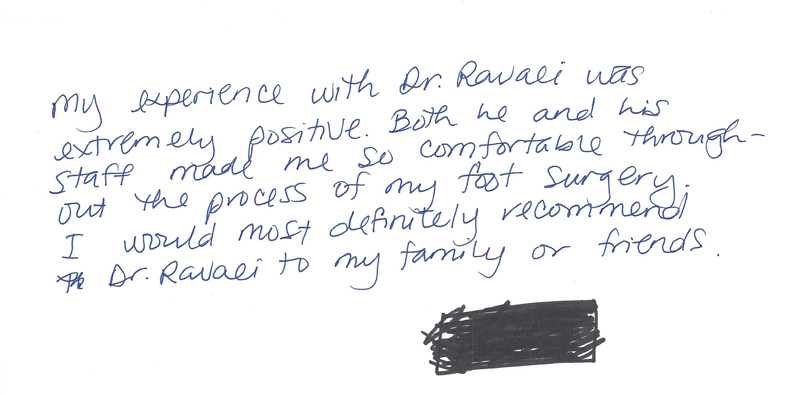 My experience with Dr. Ravaei was
extremely positive. Both he and his
staff made me so comfortable through-
out the process of my foot surgery.
I would most definitely recommend
Dr. Ravaei to my family or friends.